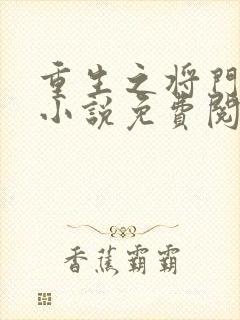 重生之将門
小説免費閱
香蕉霸霸